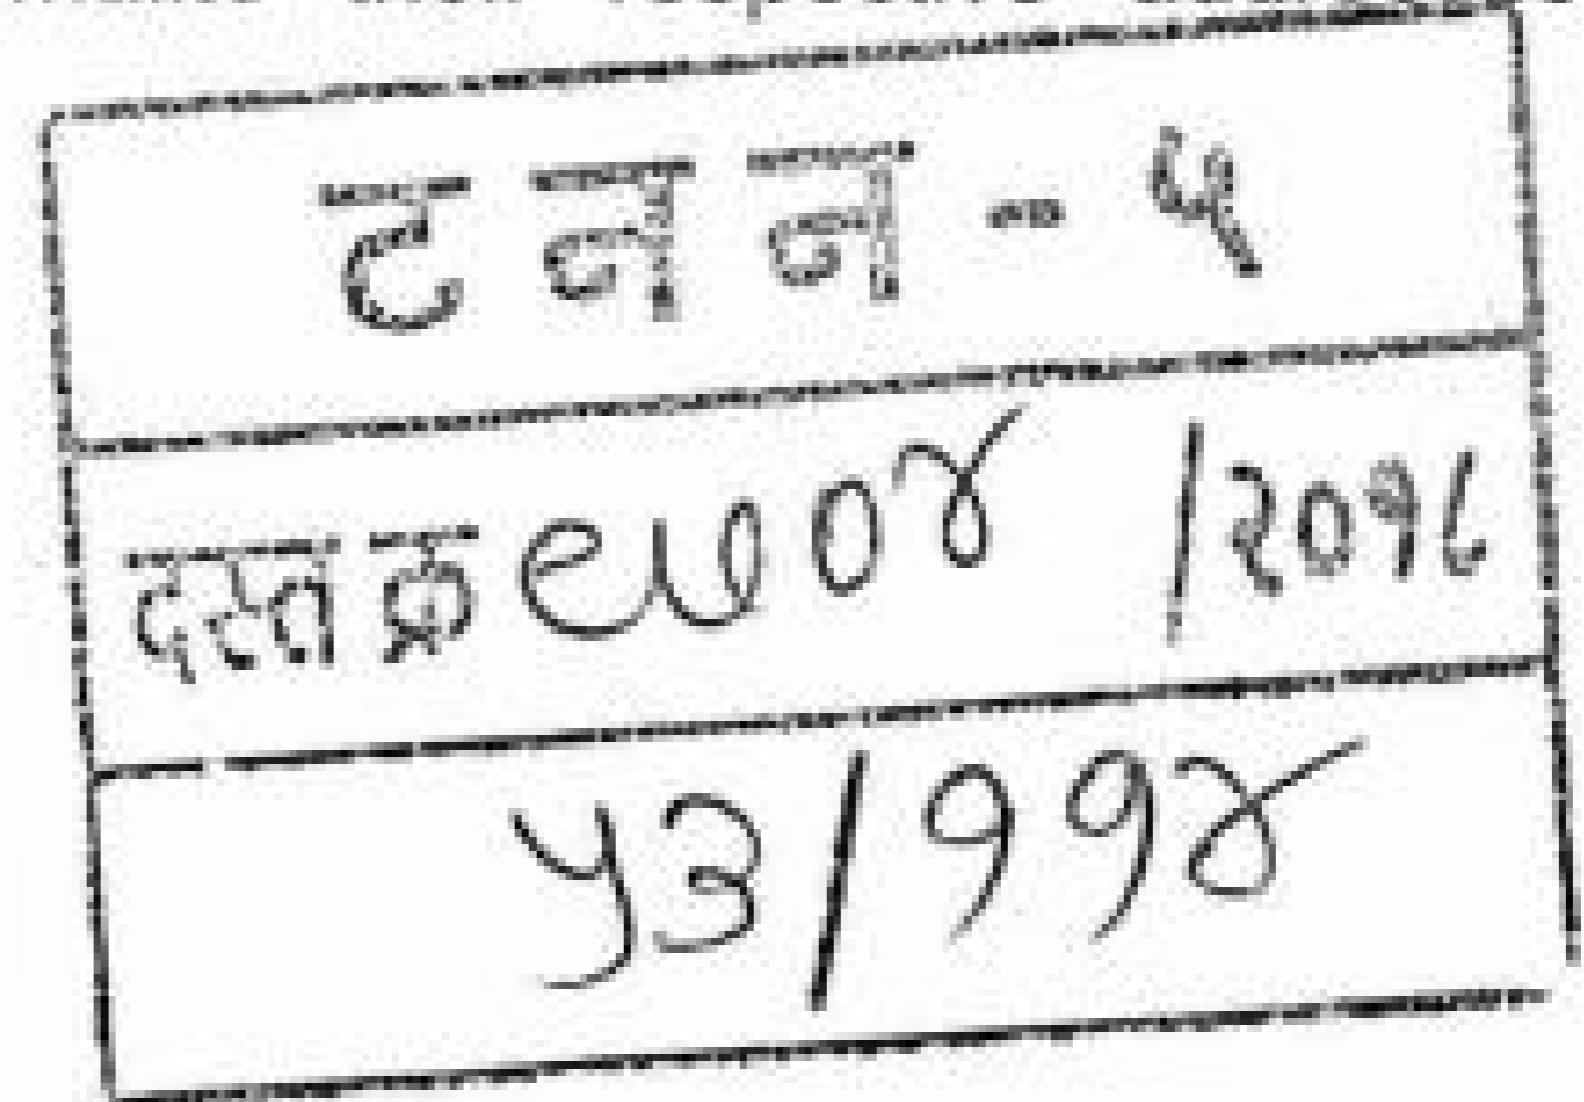 ट न न - ५
दस्त क्र ९७०४ /२०१८
५३/११४